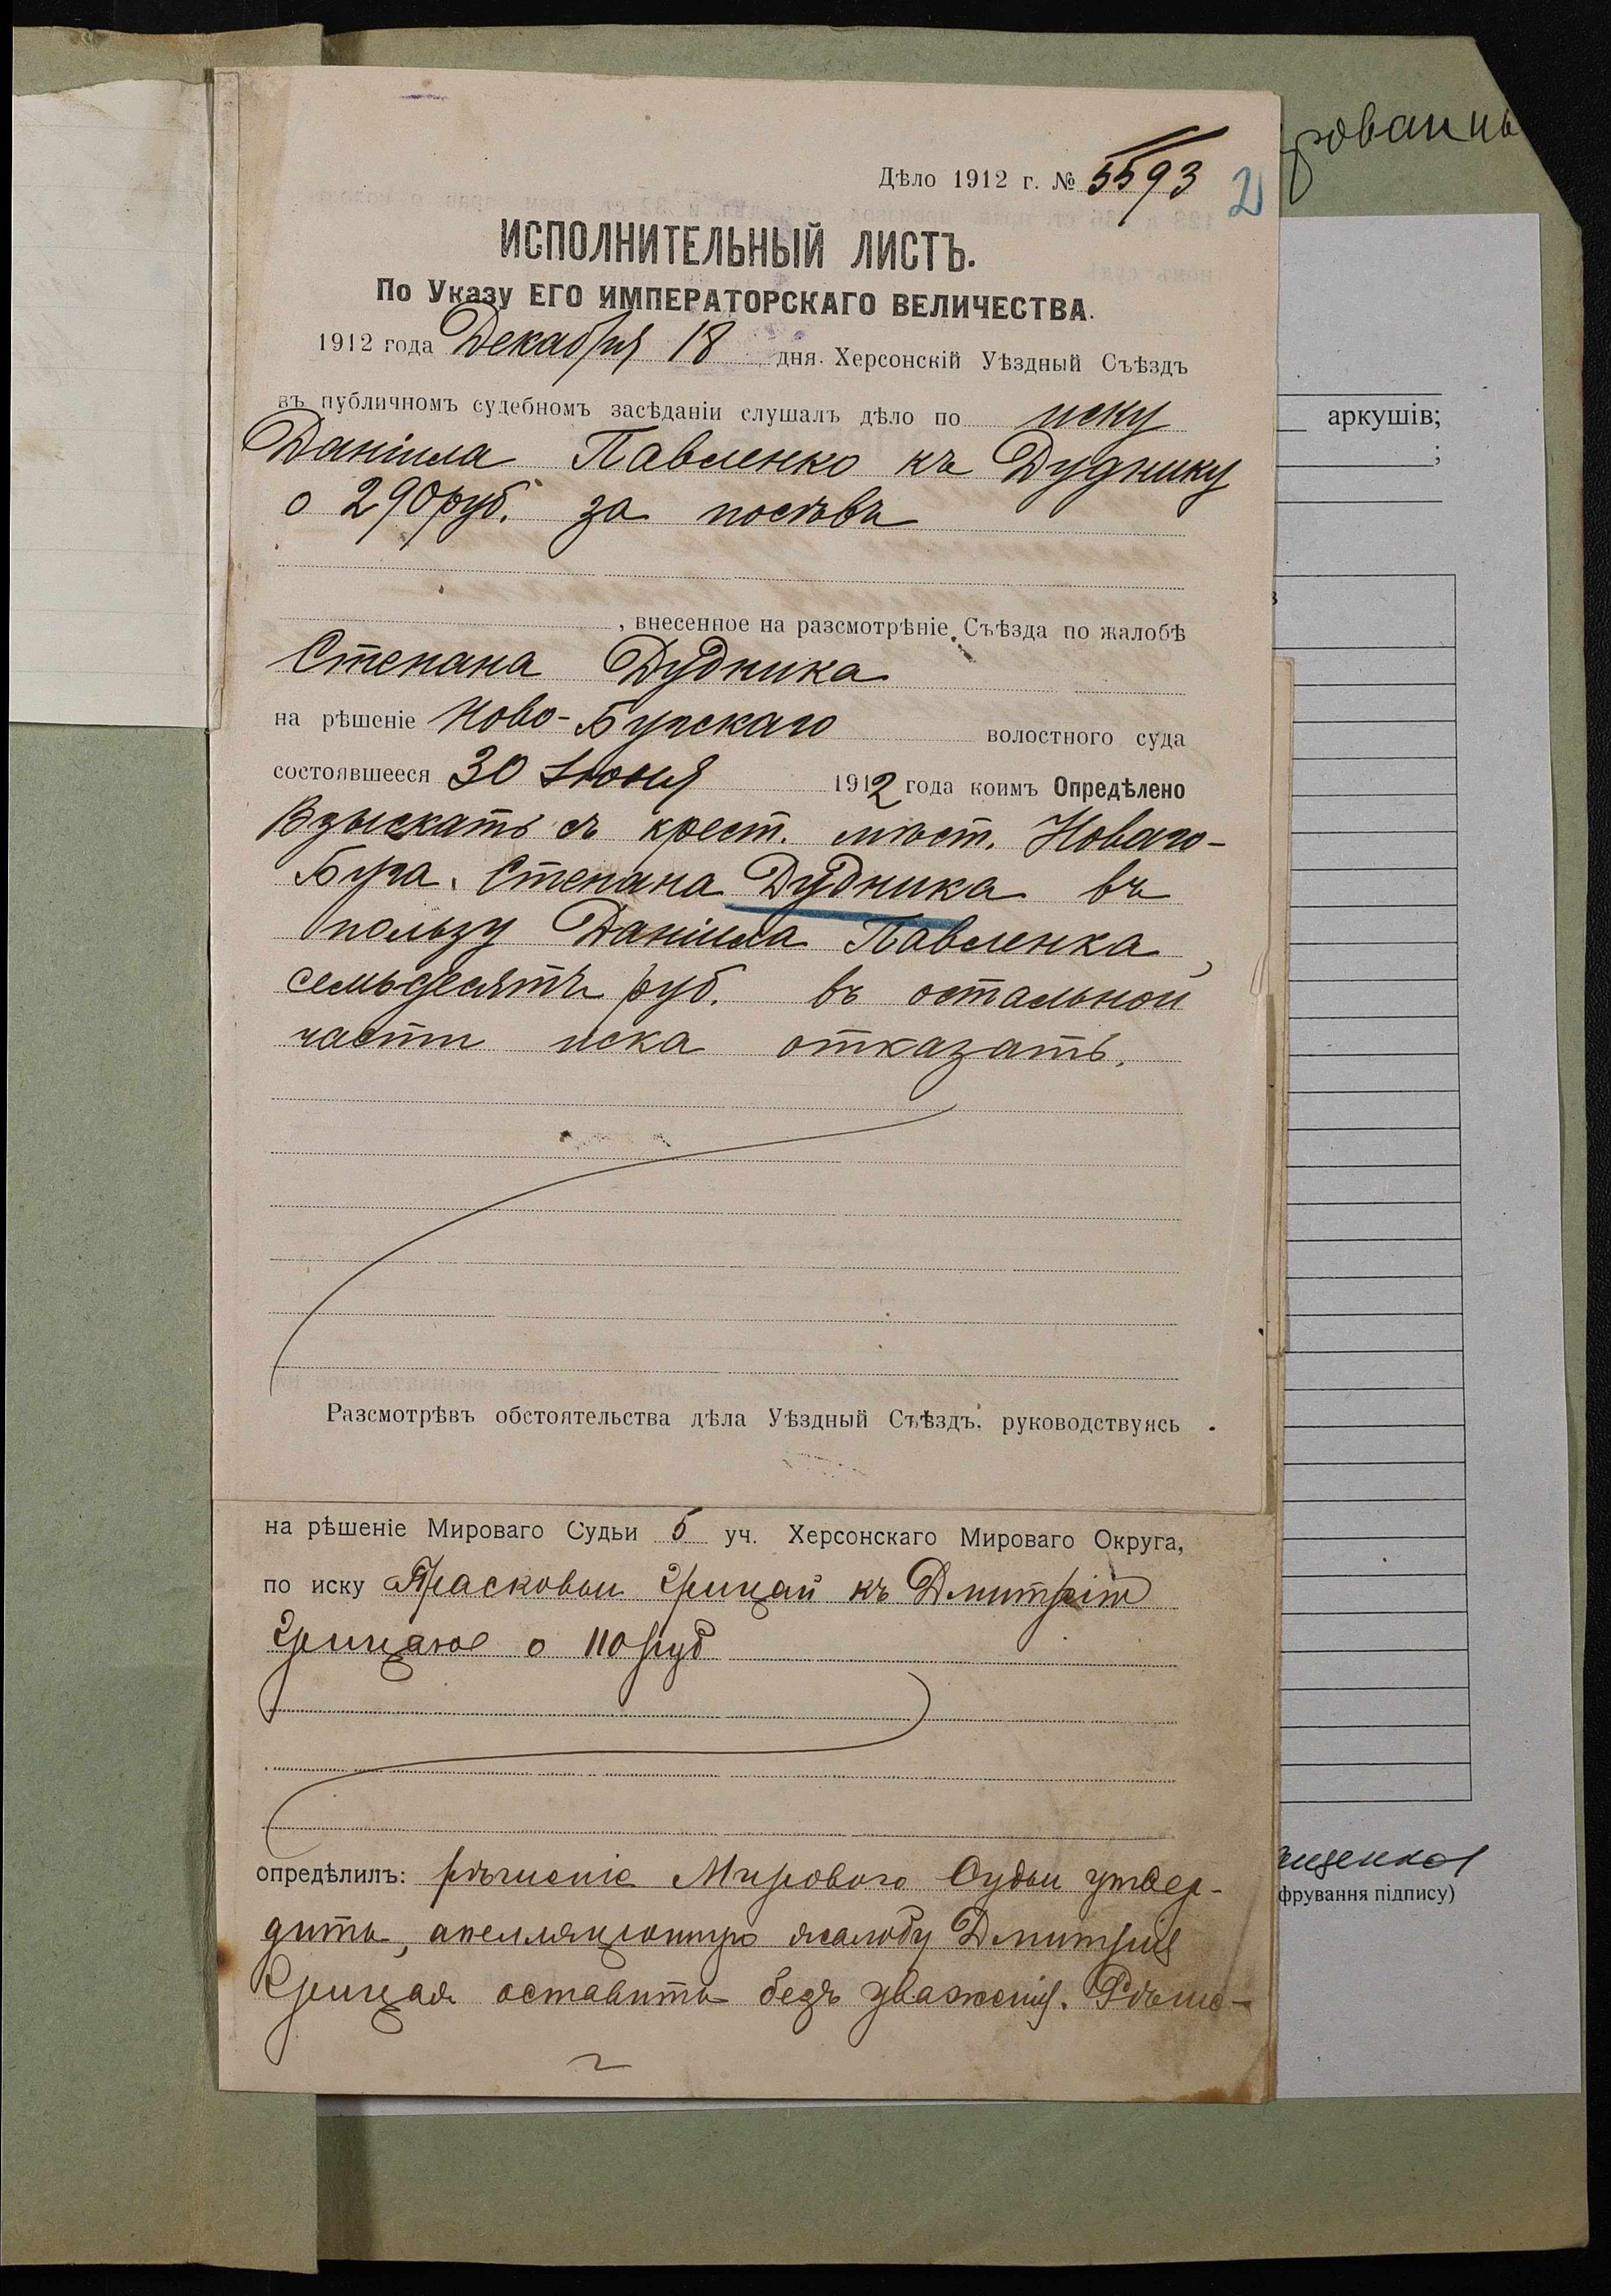 рованны
Дѣло 1912 г. № 5593
2
ИСПОЛНИТЕЛЬНЫЙ ЛИСТЪ.
По Указу ЕГО ИМПЕРАТОРСКАГО ВЕЛИЧЕСТВА.
1912 года Декабря 18 дня. Херсонскій Уѣздный Съѣздъ
въ публичномъ судебномъ засѣданіи слушалъ дѣло по иску
Даніила Павленко къ Дуднику
о 290 руб. за посѣвъ
, внесенное на разсмотрѣніе Съѣзда по жалобѣ
Степана Дудника
на рѣшеніе Ново-Бугскаго волостного суда
состоявшееся 30 Іюня 1912 года коимъ Опредѣлено
Взыскать съ крест. мѣст. Новаго-
Буга. Степана Дудника въ
пользу Даніила Павленка,
семьдесятъ руб. въ остальной
части иска отказать.
Разсмотрѣвъ обстоятельства дѣла Уѣздный Съѣздъ, руководствуясь
на рѣшеніе Мироваго Судьи 5 уч. Херсонскаго Мироваго Округа,
по иску Прасковьи Грицай къ Дмитрію
Грицаю о 110 руб
опредѣлилъ: рѣшеніе Мирового Судьи утвер-
дить, апелляціонную жалобу Дмитрія
Грицая оставить безъ уваженія. Рѣше-
аркушів;
;
в
ищенко
фрування підпису)